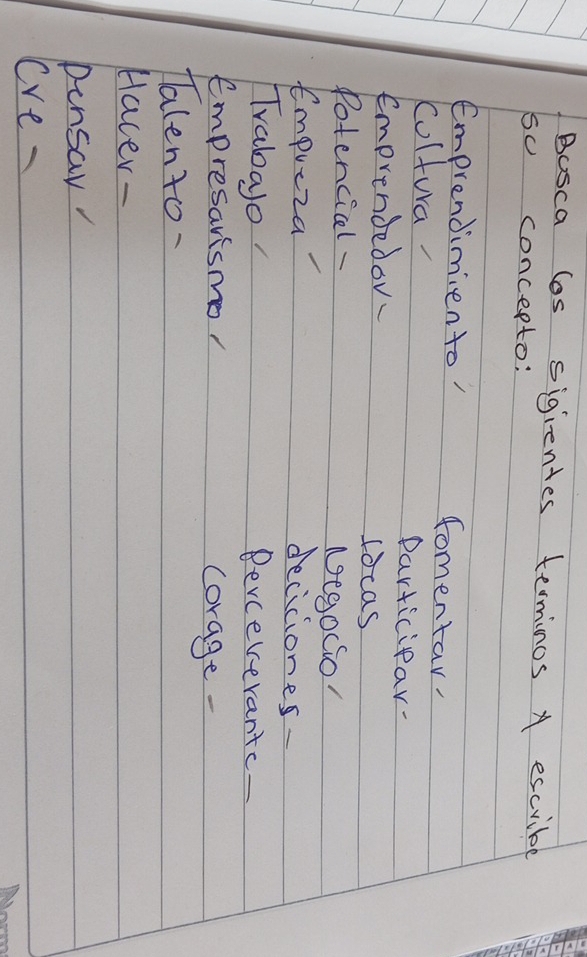 . Busca los sigientes terminos y escribe
su concepto:
Emprendimiento
Cultura
Emprendedor
Potencial
Empreza
Trabajo
Empresarismo
Talento
Hacer
Pensar
Cre
Fomentar
Participar
Ideas
Negocio
deciciones
Perceverante
Corage
Norma